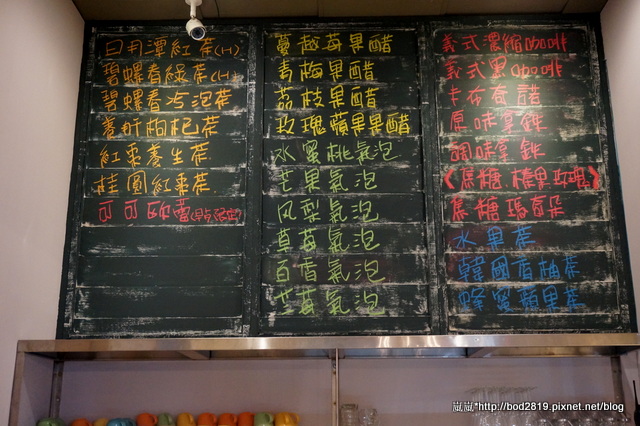 日月潭紅茶(H)
碧螺春綠茶(H)
碧螺春冷泡茶
養肝枸杞茶
紅棗養生茶
桂圓紅棗茶
可可歐蕾
蔓越莓果醋
青梅果醋
荔枝果醋
玫瑰蘋果果醋
水蜜桃氣泡
芒果氣泡
凤梨氣泡
草莓氣泡
百香氣泡
芒莓氣泡
義式濃縮coffee
義式黑coffee
卡布奇諾
原味拿鉄
調味拿鉄
《焦糖.榛果.玫瑰》
焦糖瑪奇朵
水果茶
韓國香柚茶
蜂蜜蘋果茶
嵐嵐*http://bod2819.pixnet.net/blog